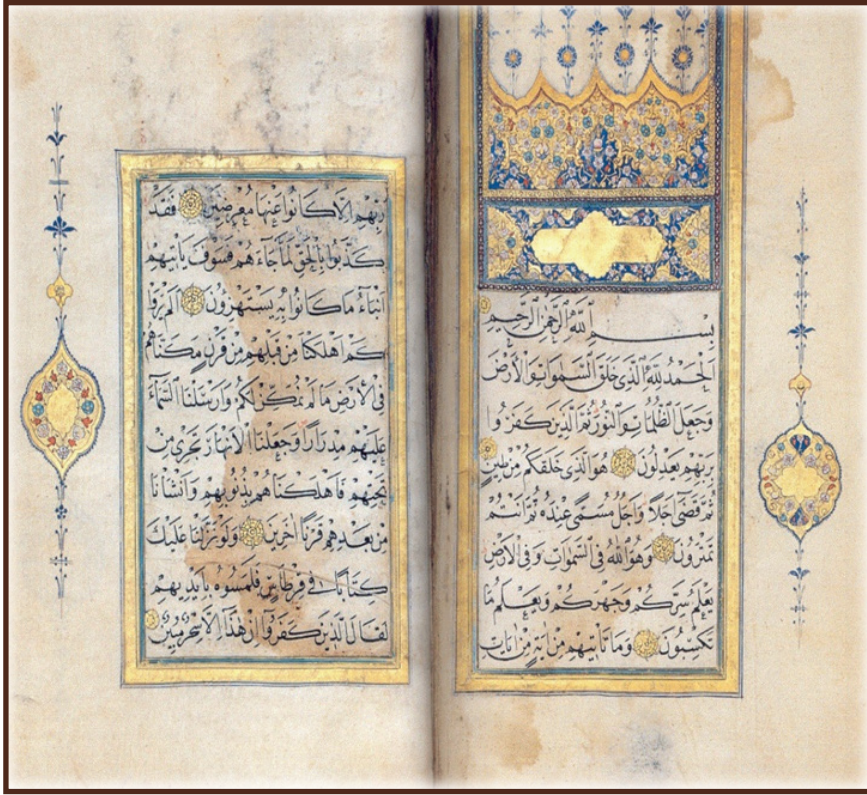 بِسْمِ ٱللَّهِ ٱلرَّحْمٰنِ ٱلرَّحِيمِ
اَلْحَمْدُ لِلَّهِ ٱلَّذِى خَلَقَ ٱلسَّمٰوَاتِ وَٱلْاَرْضَ
وَجَعَلَ ٱلظُّلُمَاتِ وَٱلنُّورَ ثُمَّ ٱلَّذِينَ كَفَرُوا
بِرَبِّهِمْ يَعْدِلُونَ هُوَ ٱلَّذِى خَلَقَكُمْ مِنْ طِينٍ
ثُمَّ قَضٰٓى اَجَلًا وَاَجَلٌ مُسَمًّى عِنْدَهُ ثُمَّ اَنْتُمْ
تَمْتَرُونَ وَهُوَ ٱللَّهُ فِى ٱلسَّمٰوَاتِ وَفِى ٱلْاَرْضِ
يَعْلَمُ سِرَّكُمْ وَجَهْرَكُمْ وَيَعْلَمُ مَا
تَكْسِبُونَ وَمَا تَأْتِيهِمْ مِنْ اٰيَةٍ مِنْ اٰيَاتِ
رَبِّهِمْ اِلَّا كَانُوا عَنْهَا مُعْرِضِينَ فَقَدْ
كَذَّبُوا بِالْحَقِّ لَمَّا جَآءَهُمْ فَسَوْفَ يَأْتِيهِمْ
اَنْبَآءُ مَا كَانُوا بِهِ يَسْتَهْزِؤُنَ اَلَمْ يَرَوْا
كَمْ اَهْلَكْنَا مِنْ قَبْلِهِمْ مِنْ قَرْنٍ مَكَّنَّاهُمْ
فِى ٱلْاَرْضِ مَا لَمْ نُمَكِّنْ لَكُمْ وَاَرْسَلْنَا ٱلسَّمَآءَ
عَلَيْهِمْ مِدْرَارًا وَجَعَلْنَا ٱلْاَنْهَارَ تَجْرِى مِنْ
تَحْتِهِمْ فَاَهْلَكْنَاهُمْ بِذُنُوبِهِمْ وَاَنْشَأْنَا
مِنْ بَعْدِهِمْ قَرْنًا اٰخَرِينَ وَلَوْ نَزَّلْنَا عَلَيْكَ
كِتَابًا فِى قِرْطَاسٍ فَلَمَسُوهُ بِاَيْدِيهِمْ
لَقَالَ ٱلَّذِينَ كَفَرُوٓا اِنْ هٰذَٓا اِلَّا سِحْرٌ مُبِينٌ